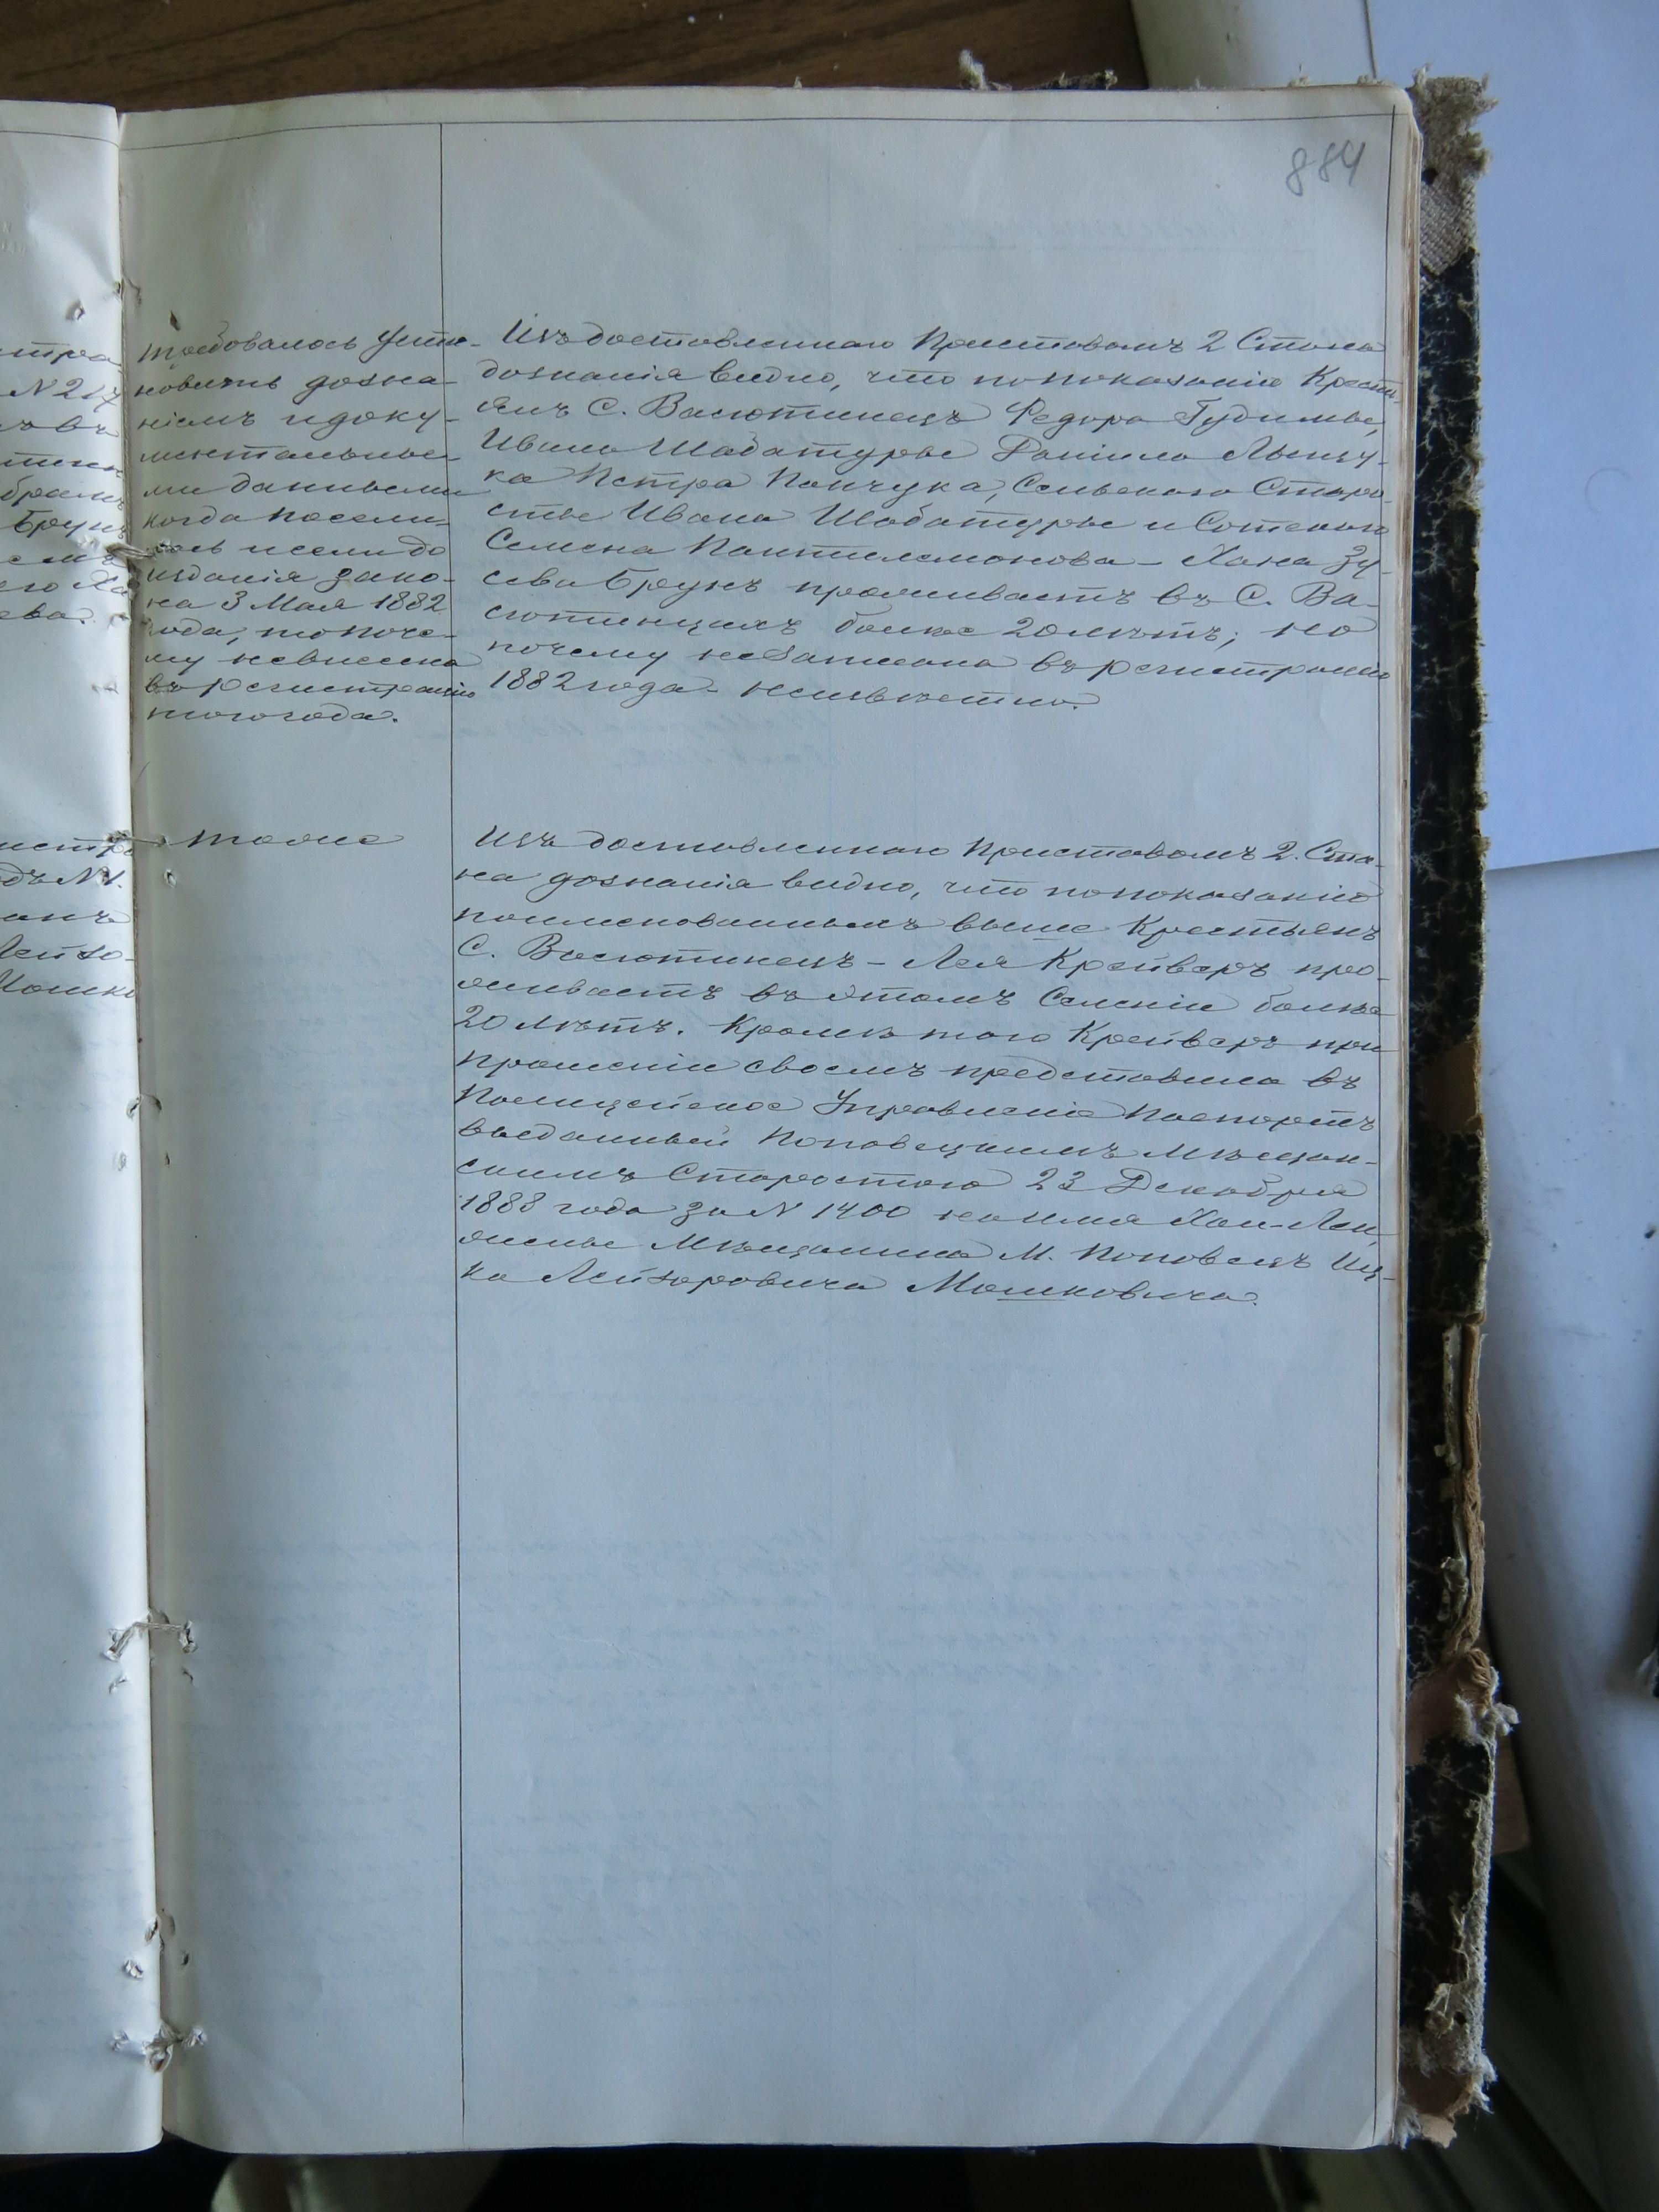 884
Требовалось уста-
новить дозна-
ніемъ и доку-
ментальны-
ми данными
когда посели-
лась и если до
изданія зако-
на 3 Мая 1882
года, то поче-
му невнесена
въ регистрацію
того года.
Изъ доставленнаго Приставомъ 2 Стана
дознанія видно, что по показанію Кресть-
янъ С. Васютинецъ Федора Гудимы,
Ивана Шабатуры Даніила
ка Петра Панчука, Сельскаго Старо-
сты Ивана Шабатуры и Сотскаго
Семена Пантелемонова - Хана Зу-
сева Брунъ проживаетъ въ С. Ва-
сютинцахъ болѣе 20 лѣтъ; но
почему не записана въ регистрацію
1882 года - неизвѣстно.
тоже
Изъ доставленнаго Приставомъ 2. Ста-
на дознанія видно, что по показанію
поименованныхъ выше Крестьянъ
С. Васютинецъ - Лея Крейверъ про-
живаетъ въ этомъ Селеніи болѣе
20 лѣтъ. Кромѣ того Крейверъ при
прошеніи своемъ представила въ
Полицейское Управленіе Паспортъ
выданный Поповецкимъ Мѣщан-
скимъ Старостою 23 Декабря
1888 года за N 1400 на имя Хаи-Леи,
жены Мѣщанина М. Поповецъ Иц-
ка Лейзоровича Мошковича.
N 217
Брунъ